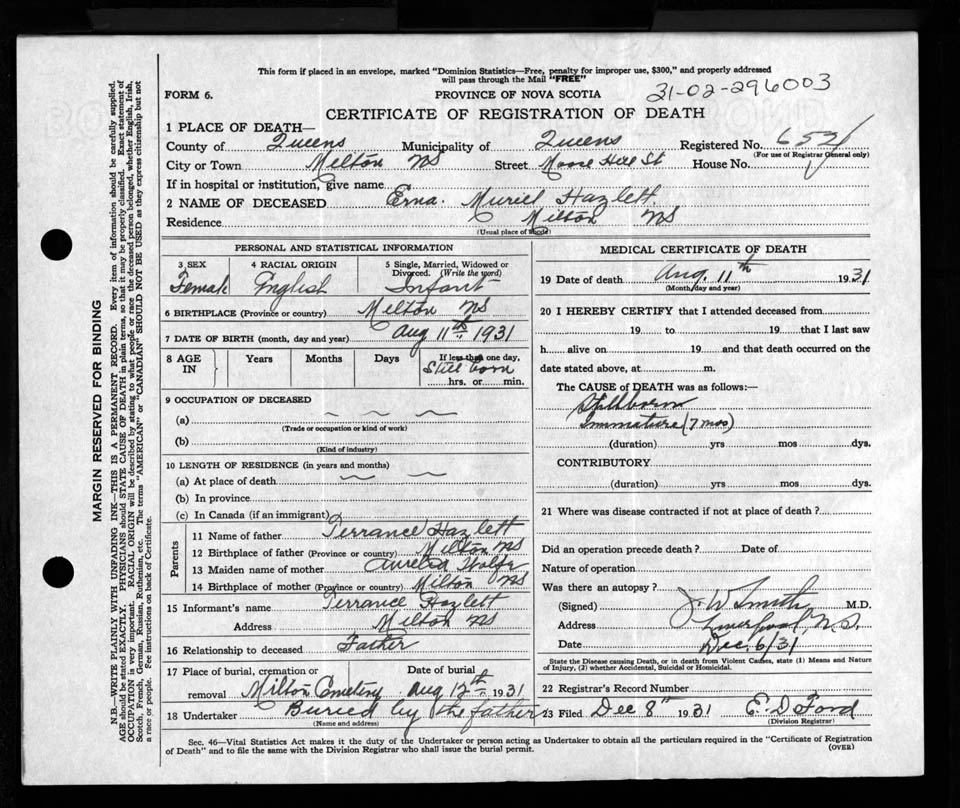 This form if placed in an envelope, marked "Dominion Statistics—Free, penalty for improper use, $300," and properly addressed
will pass through the Mail "FREE"
FORM 6.
PROVINCE OF NOVA SCOTIA
31-02-296003
CERTIFICATE OF REGISTRATION OF DEATH
1 PLACE OF DEATH—
County of Queens Municipality of Queens Registered No.
(For use of Registrar General only)
City or Town Milton NS Street Moose Hill St House No.
If in hospital or institution, give name
2 NAME OF DECEASED Erna Muriel Hazlett.
Residence Milton NS
(Usual place of abode)
PERSONAL AND STATISTICAL INFORMATION
3 SEX 4 RACIAL ORIGIN 5 Single, Married, Widowed or
Divorced. (Write the word)
Female English Infant
6 BIRTHPLACE (Province or country) Milton NS
7 DATE OF BIRTH (month, day and year) Aug 11th 1931
8 AGE IN Years Months Days If less than one day,
Still born
hrs. or min.
9 OCCUPATION OF DECEASED
(a)
(Trade or occupation or kind of work)
(b)
(Kind of industry)
10 LENGTH OF RESIDENCE (in years and months)
(a) At place of death
(b) In province
(c) In Canada (if an immigrant)
Parents
11 Name of father Terrance Hazlett
12 Birthplace of father (Province or country) Milton NS
13 Maiden name of mother Aurelia Wolfe
14 Birthplace of mother (Province or country) Milton NS
15 Informant's name Terrance Hazlett
Address Milton NS
16 Relationship to deceased Father
17 Place of burial, cremation or Date of burial
removal Milton Cemetery Aug 12th 1931
18 Undertaker Buried by the fathers
(Name and address)
MEDICAL CERTIFICATE OF DEATH
19 Date of death Aug. 11th 1931
(Month, day and year)
20 I HEREBY CERTIFY that I attended deceased from
19 to 19 that I last saw
h alive on 19 and that death occurred on the
date stated above, at m.
The CAUSE of DEATH was as follows:—
Stillborn
Immature (7 mos)
(duration) yrs mos dys.
CONTRIBUTORY
(duration) yrs mos dys.
21 Where was disease contracted if not at place of death?
Did an operation precede death? Date of
Nature of operation
Was there an autopsy?
(Signed) J. W. Smith M.D.
Address Liverpool, N.S.
Date Dec. 6/31
State the Disease causing Death, or in death from Violent Causes, state (1) Means and Nature
of Injury, (2) whether Accidental, Suicidal or Homicidal.
22 Registrar's Record Number
23 Filed Dec 8th 1931 E. D Ford
(Division Registrar)
Sec. 46—Vital Statistics Act makes it the duty of the Undertaker or person acting as Undertaker to obtain all the particulars required in the "Certificate of Registration
of Death" and to file the same with the Division Registrar who shall issue the burial permit.
(OVER)
MARGIN RESERVED FOR BINDING
N.B.—WRITE PLAINLY WITH UNFADING INK—THIS IS A PERMANENT RECORD. Every item of information should be carefully supplied.
AGE should be stated EXACTLY. PHYSICIANS should STATE CAUSE OF DEATH in plain terms, so that it may be properly classified. Exact statement of
OCCUPATION is very important. RACIAL ORIGIN will be described by stating to what people or race the deceased person belonged, whether English, Irish,
Scotch, French, German, Russian, Ruthenian, etc. The terms "AMERICAN" or "CANADIAN" SHOULD NOT BE USED as they express citizenship but not
a race or people. See instructions on back of Certificate.